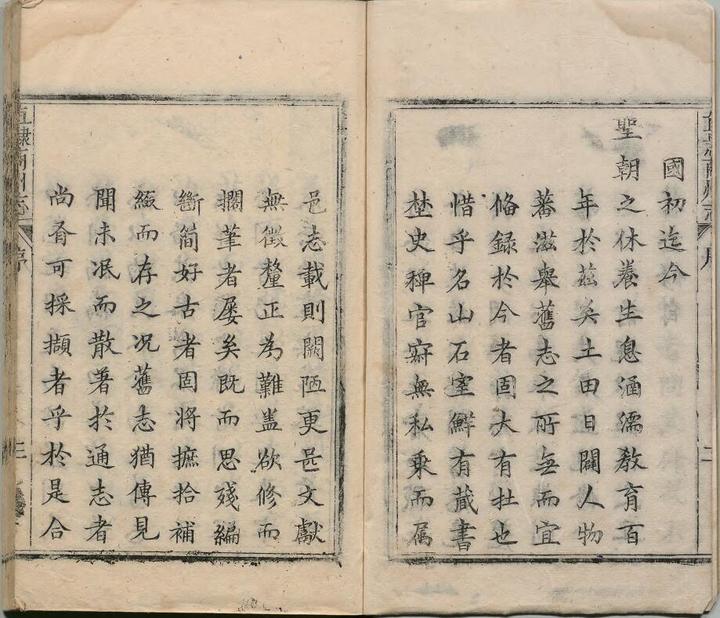 國初迄今
聖朝之休養生息涵濡教育百
年於茲矣土田日闢人物
蕃滋舉舊志之所無而宜
俻録於今者固大有在也
惜乎名山石室鮮有藏書
埜史稗官窾無私乘而属
邑志載則闕陋更甚文獻
無徵釐正為難盖欲修而
擱筆者屡矣既而思殘編
斷簡好古者固将摭拾補
綴而存之况舊志猶傳見
聞未泯而散著扵通志者
尚有可採擷者乎扵是合
直隷商州志
序